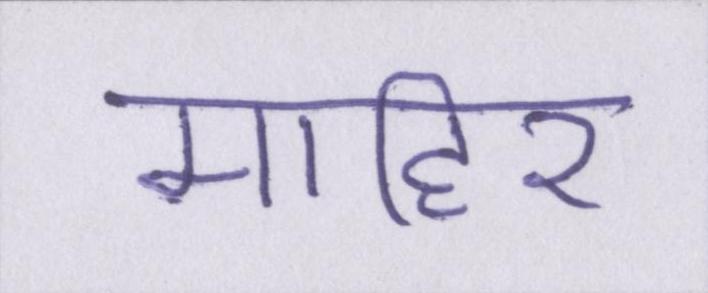 माहिर